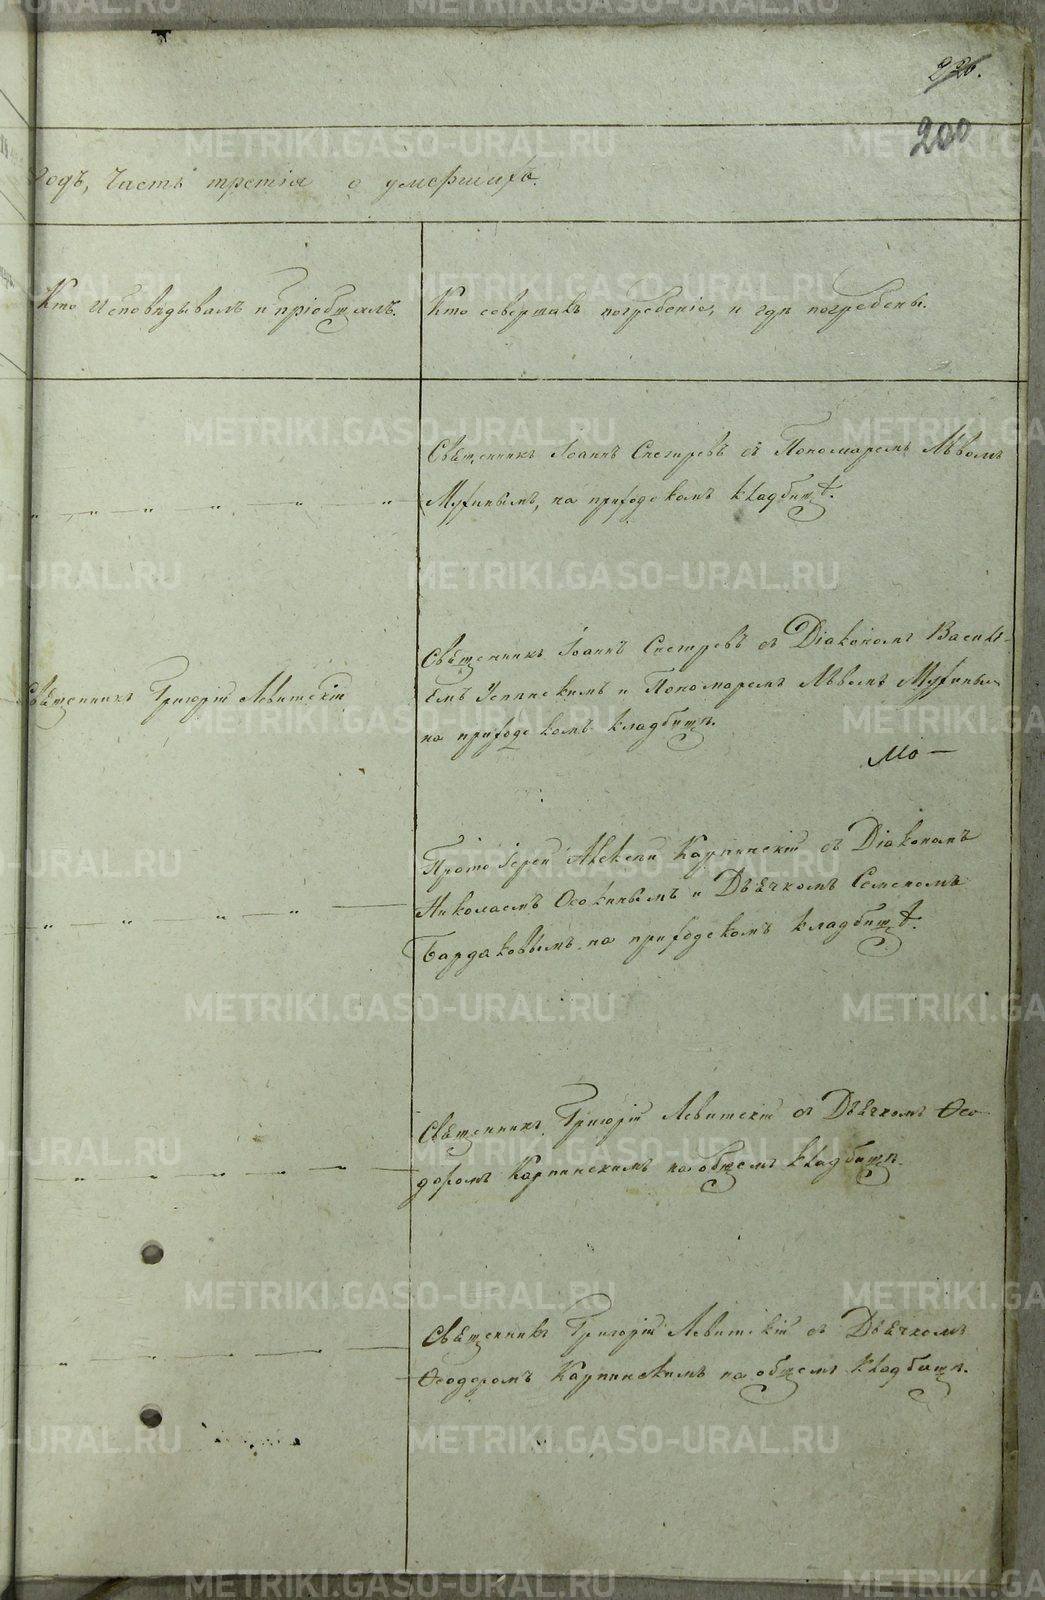 226.
200
Годъ, Часть третія о умершихъ.
Кто Исповѣдывалъ и пріобщалъ.
Кто совершалъ погребеніе, и гдѣ погребены.
Священникъ Іоаннъ Снегиревъ съ Пономаремъ Львомъ
Мухинымъ, на приходскомъ кладбищѣ.
Священникъ Григорій Левитскій
Священникъ Іоаннъ Снегиревъ съ Діакономъ Васильемъ
Успенскимъ и Пономаремъ Львомъ Мухинымъ
на приходскомъ кладбищѣ.
Мо—
Протоіерей Алексей Карпинскій съ Діакономъ
Николаемъ Осокинымъ и Дьячкомъ Семеномъ
Бардаковымъ, на приходскомъ кладбищѣ.
Священникъ Григорій Левитскій съ Дьячкомъ Ѳео-
доромъ Карпинскимъ на общемъ кладбищѣ.
Священникъ Григорій Левитскій съ Дьячкомъ
Ѳеодоромъ Карпинскимъ на общемъ кладбищѣ.
METRIKI.GASO-URAL.RU